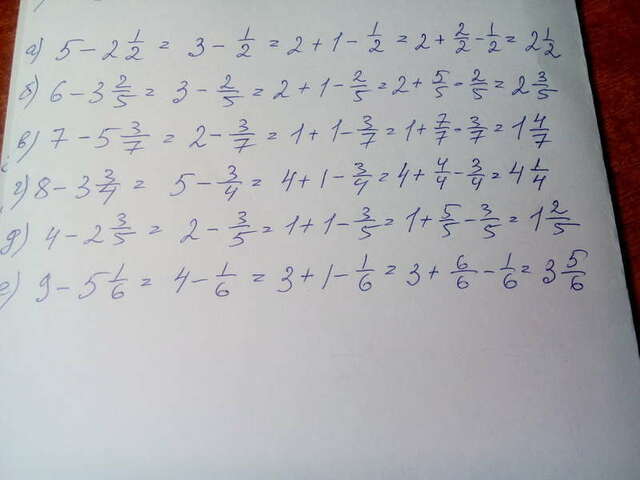 а) 5 - 2 1/2 = 3 - 1/2 = 2 + 1 - 1/2 = 2 + 2/2 - 1/2 = 2 1/2
б) 6 - 3 2/5 = 3 - 2/5 = 2 + 1 - 2/5 = 2 + 5/5 - 2/5 = 2 3/5
в) 7 - 5 3/7 = 2 - 3/7 = 1 + 1 - 3/7 = 1 + 7/7 - 3/7 = 1 4/7
г) 8 - 3 3/4 = 5 - 3/4 = 4 + 1 - 3/4 = 4 + 4/4 - 3/4 = 4 1/4
д) 4 - 2 3/5 = 2 - 3/5 = 1 + 1 - 3/5 = 1 + 5/5 - 3/5 = 1 2/5
е) 9 - 5 1/6 = 4 - 1/6 = 3 + 1 - 1/6 = 3 + 6/6 - 1/6 = 3 5/6